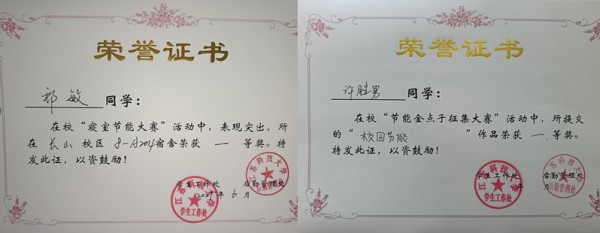 荣誉证书
郭敏 同学：
在校“寝室节能大赛”活动中，表现突出，所
在 长山 校区 8-A204 宿舍荣获 一 等奖。特
发此证，以资鼓励！
学生工作处 后勤管理处
年 6 月
学生工作处
荣誉证书
许胜男 同学：
在校“节能金点子征集大赛”活动中，所提交
的“校园节能 ”作品荣获 一 等奖。
特发此证，以资鼓励！
学生工作处 后勤管理处
年 月
江苏科技大学
学生工作处
后勤管理处